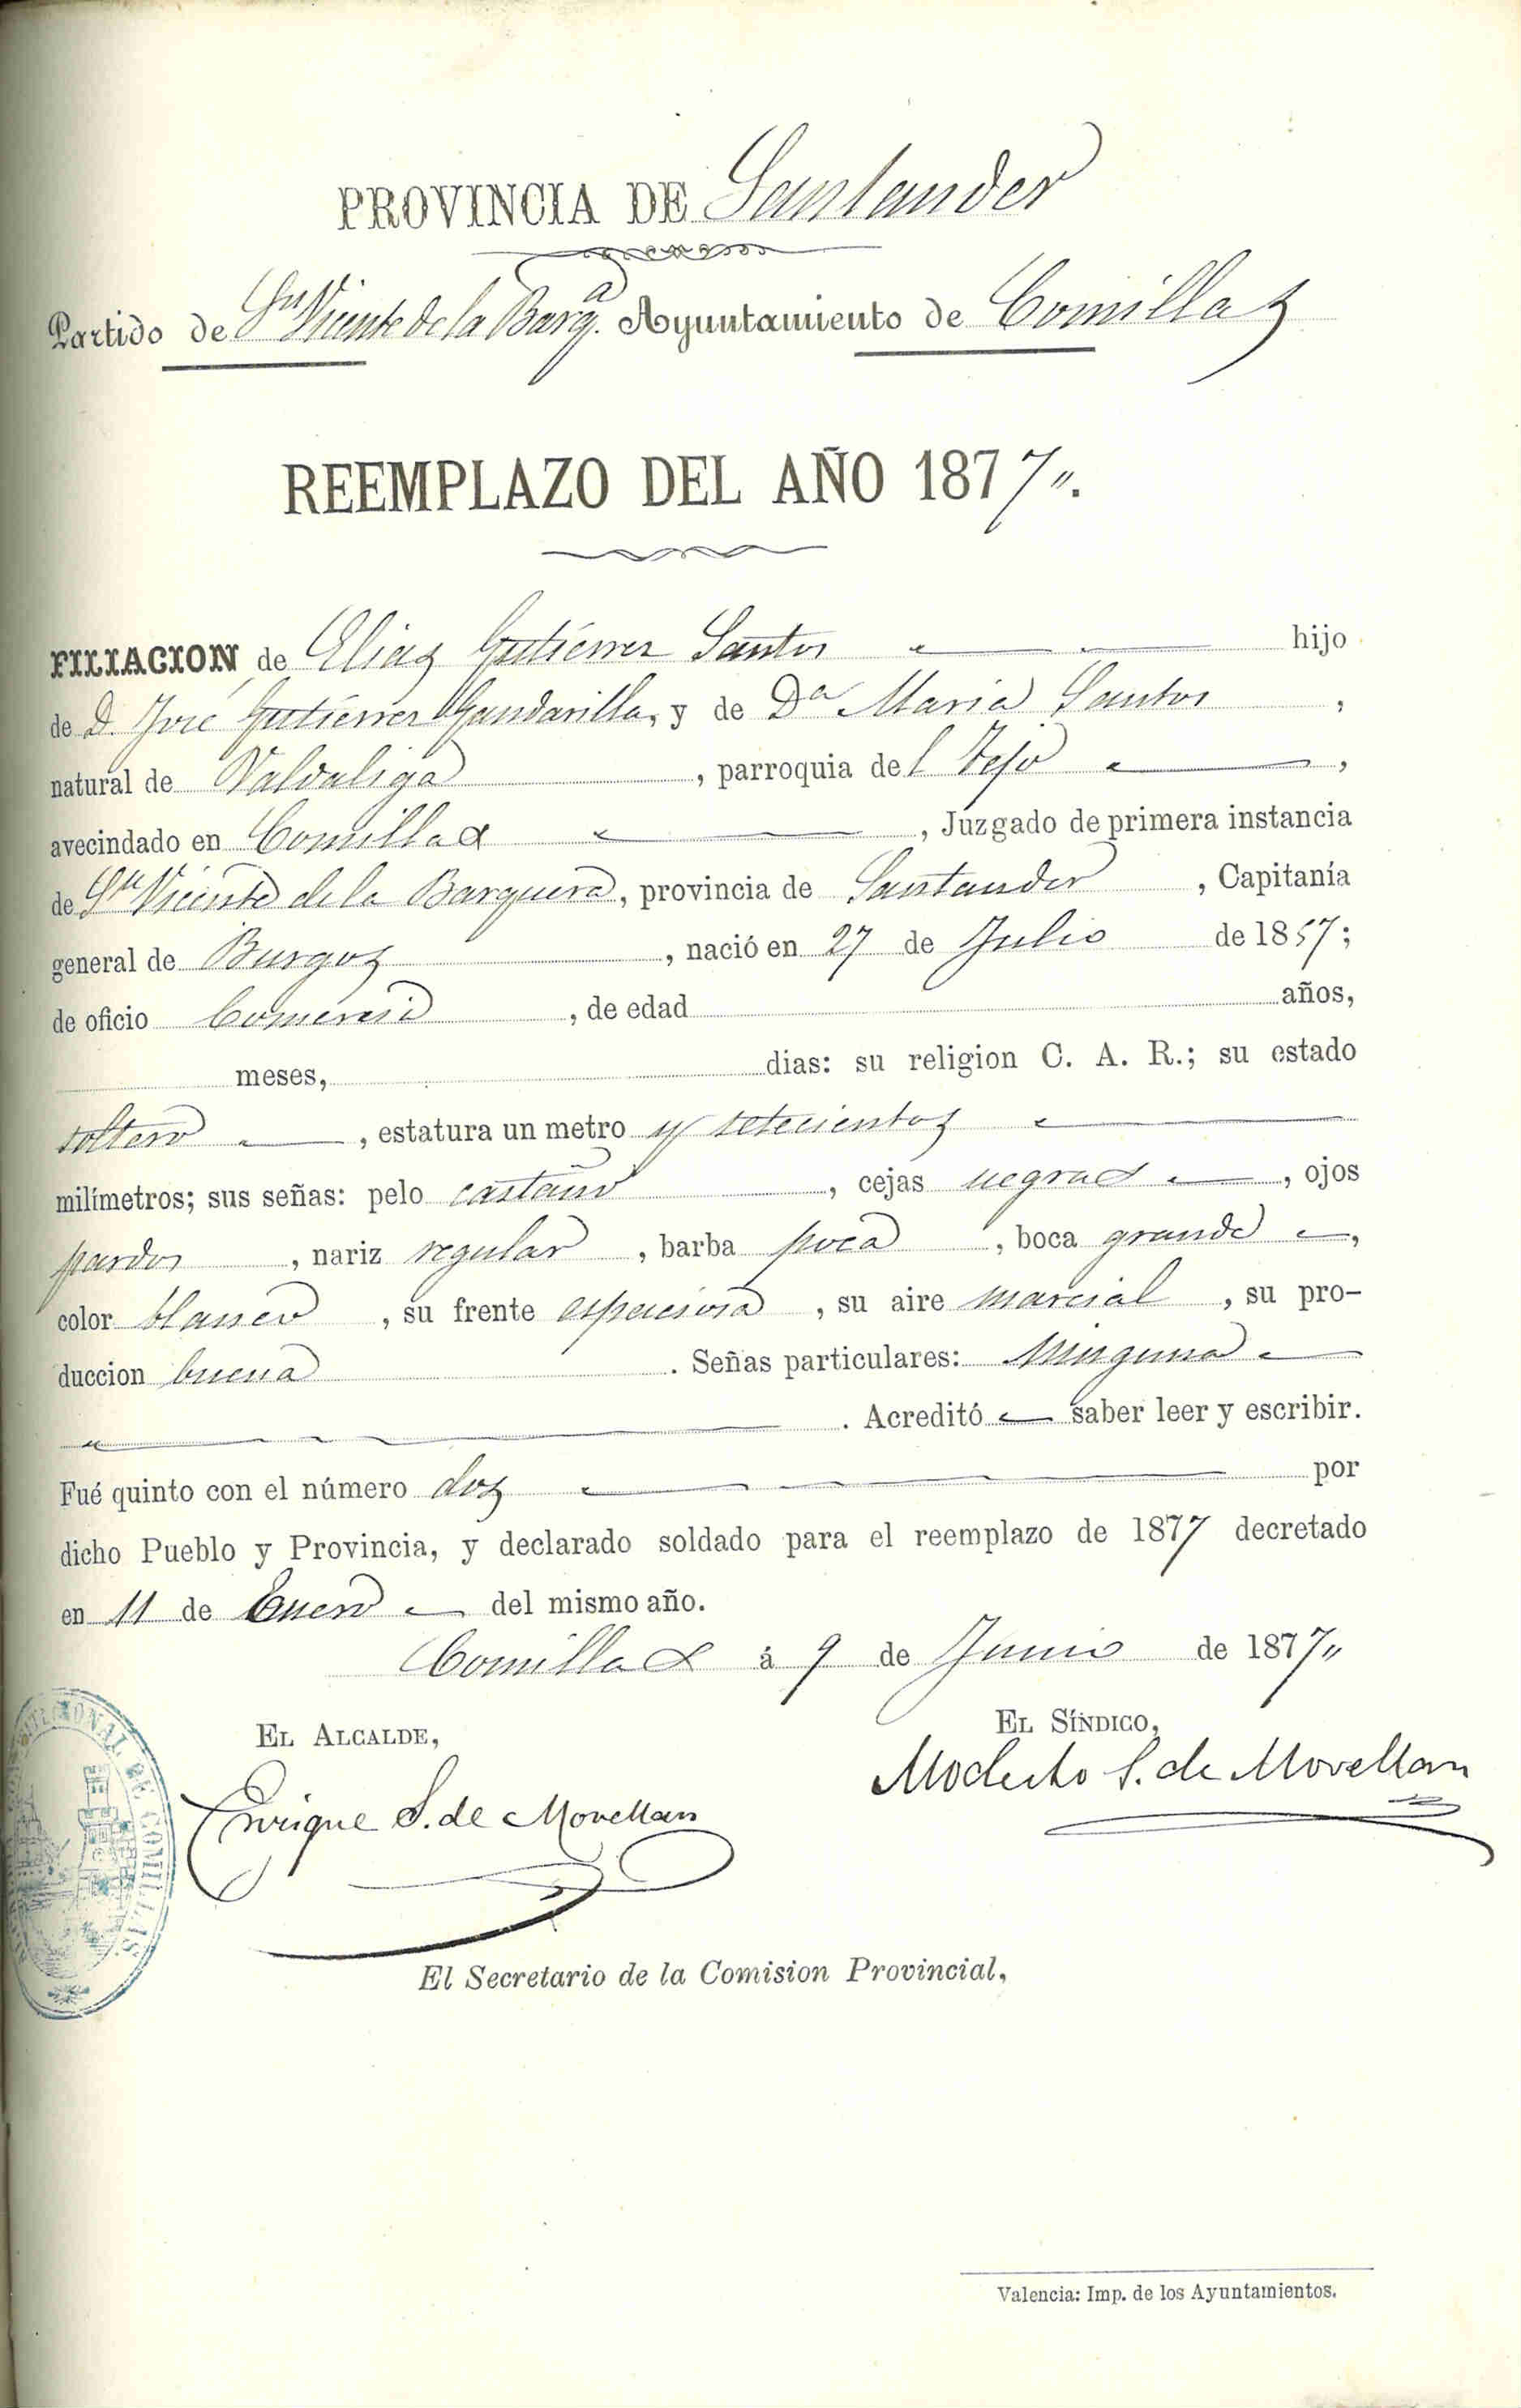 PROVINCIA DE Santander
Partido de Sn Vicente de la Barqa. Ayuntamiento de Comillas
REEMPLAZO DEL AÑO 1877".
FILIACION de Elias Gutierrez Santos hijo
de D. José Gutierrez Gandarilla, y de Da Maria Santos,
natural de Valdaliga, parroquia del Tejo,
avecindado en Comillas, Juzgado de primera instancia
de Sn Vicente de la Barquera, provincia de Santander, Capitanía
general de Burgos, nació en 27 de Julio de 1857;
de oficio Comercio, de edad años,
meses, dias: su religion C. A. R.; su estado
soltero, estatura un metro y setecientos
milímetros; sus señas: pelo castaño, cejas negras, ojos
pardos, nariz regular, barba poca, boca grande,
color blanco, su frente espaciosa, su aire marcial, su pro-
duccion buena. Señas particulares: Ninguna
. Acreditó saber leer y escribir.
Fué quinto con el número dos por
dicho Pueblo y Provincia, y declarado soldado para el reemplazo de 1877 decretado
en 11 de Enero del mismo año.
Comillas á 9 de Junio de 1877"
EL ALCALDE, EL SÍNDICO,
Enrique S. de Movellan Modesto S. de Movellan
CIONAL DE COMILLAS
El Secretario de la Comision Provincial,
Valencia: Imp. de los Ayuntamientos.